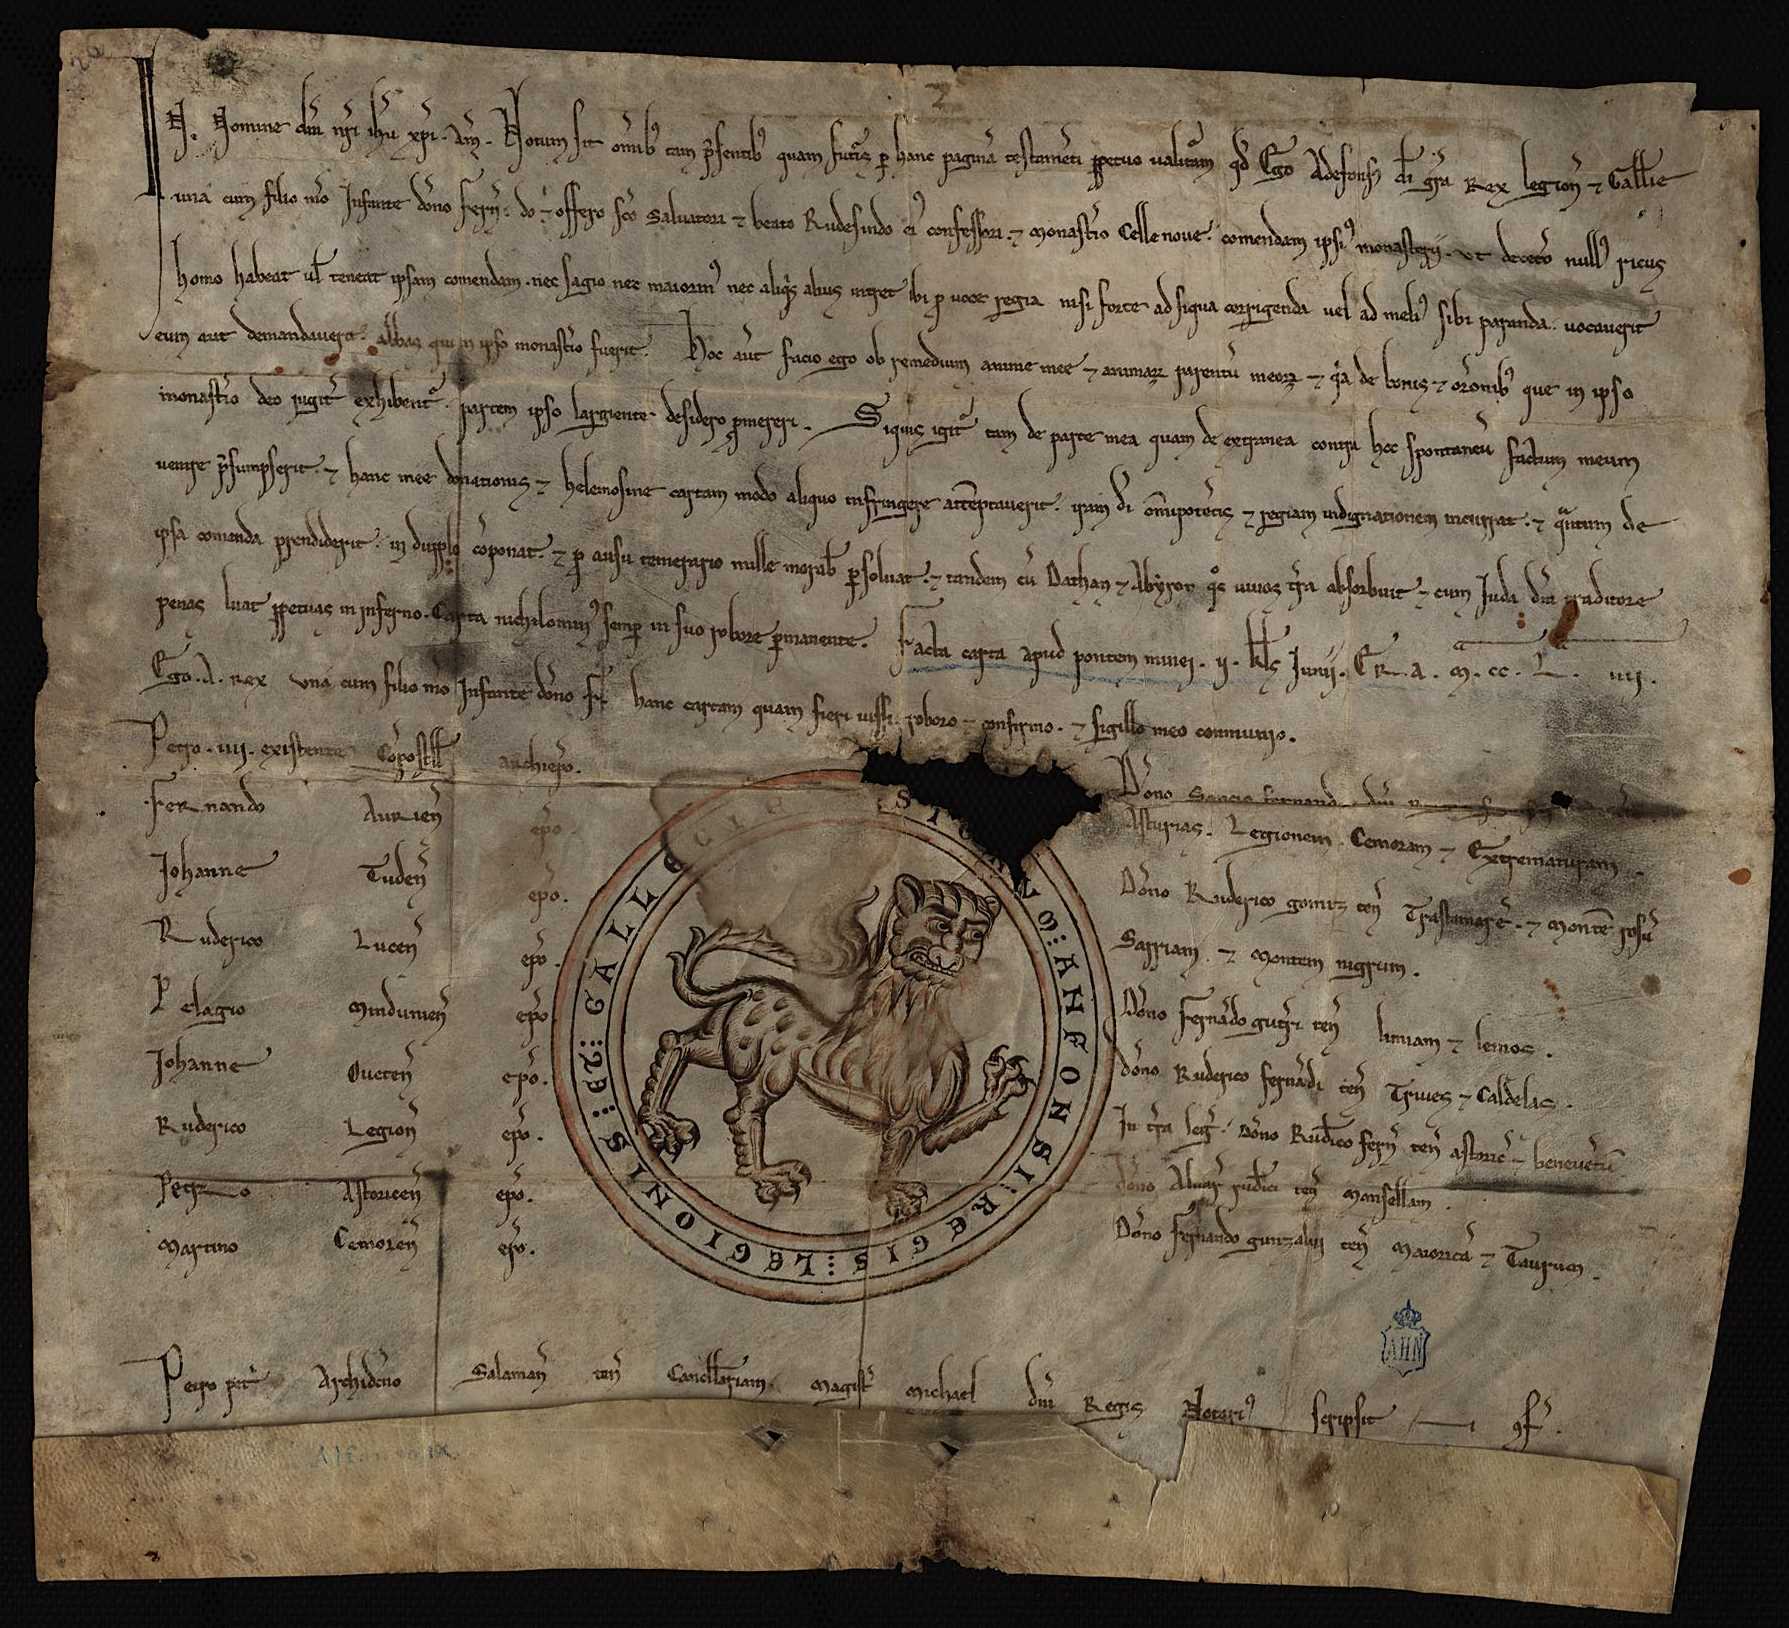 IN. Nomine dñi nr̃i ihũ xp̃i. am̃. Notum sit om̃ibꝰ tam p̃sentibꝰ quam futur̃ p hanc paginã testam̃ti ppetuo ualitur̃ qd̃ Ego Adefonsꝰ di gr̃a Rex legion̄ ⁊ Gallecie
una cum filio m̃o Infante dõno fern̄. do ⁊ offero sc̃o Saluatori ⁊ beato Rudesindo eiꝰ confessori. ⁊ monast̃io Cellenoue. comendam ipsiꝰ monasterij. ut decet̃o nullꝰ ricus
homo habeat ul̃ teneat ipsam comendam. nec sagio nec maiorinꝰ nec aliq̃s alius intret ibi p uoce regia nisi forte ad siqua corrigenda uel ad meliꝰ sibi paranda. uocauerit
eum aut demandauerit. Abbas qui in ipso monast̃io fuerit. Hoc aũt facio ego ob remedium anime mee ⁊ animarꝝ parentũ meorꝝ ⁊ q̃a de bonis ⁊ or̃onibꝰ que in ipso
monast̃io deo iugit̃ exhibent̃. partem ipso largiente desidero p̃mereri. Siquis igit̃ tam de parte mea quam de extranea contra hoc spontaneũ factum meum
uenire p̃sumpserit. ⁊ hanc mee donationis ⁊ helemosine cartam modo aliquo infringere attẽptauerit. iram di om̃ipotẽtis ⁊ regiam indignationem incurrat. ⁊ q̃ntum de
ipsa comenda prendiderit. in dupplo cõponat. ⁊ p ausu temerario mille morab̃ psoluat. ⁊ tandem cũ Dathan ⁊ Abyron qᵒs uiuos t̃ra absorbuit ⁊ cum Iuda dñi traditore
penas luat ppetuas in inferno. Carta nichilominꝰ semp in suo robore pmanente. Facta carta apud pontem minei. ij. kls̃ Iunij. ER.a. M. CC. L. iiij.
Ego. A. rex una cum filio m̃o Infante dõno fr̃. hanc cartam quam fieri iussi. roboro ⁊ confirmo. ⁊ sigillo meo communio.
Petro. iiij. existente Cõpostell̃ archiep̃o.
Fernando Aurien̄ ep̃o.
Iohanne Tuden̄ ep̃o.
Ruderico Lucen̄ ep̃o.
Pelagio Mindunien̄ ep̃o.
Iohanne Oueten̄ ep̃o.
Ruderico Legion̄ ep̃o.
Petro Astoricen̄ ep̃o.
Martino Cemoren̄ ep̃o.
ANFONSI : REGIS : LEGIONIS : ET : GALLECIE
Dõno Sancio fernandi
Asturias. Legionem. Cemoram ⁊ Extrematuram.
Dõno Ruderico gomez ten̄ Trastamar̃. ⁊ Montẽ rosũ
Sarriam. ⁊ Montem nigrum.
Dõno Fernãdo gut̃ri ten̄ limiam ⁊ lemos.
dõno Ruderico fernãdi ten̄ Triues ⁊ Caldelas.
In t̃ra leg̃. Dõno Rud̃ico fern̄ ten̄ astoric̃ ⁊ beneuentũ
dõno Aluar̃ rud̃ici ten̄ Mansellam.
Dõno Fernando gunzalui ten̄ Maioricã ⁊ Taurum.
AHN
Petro pet̃ Archidc̃no Salaman̄ ten̄ Cancell̃ariam. Magist̃ Michael dñi Regis Notariꝰ scripsit ꝯf̃.